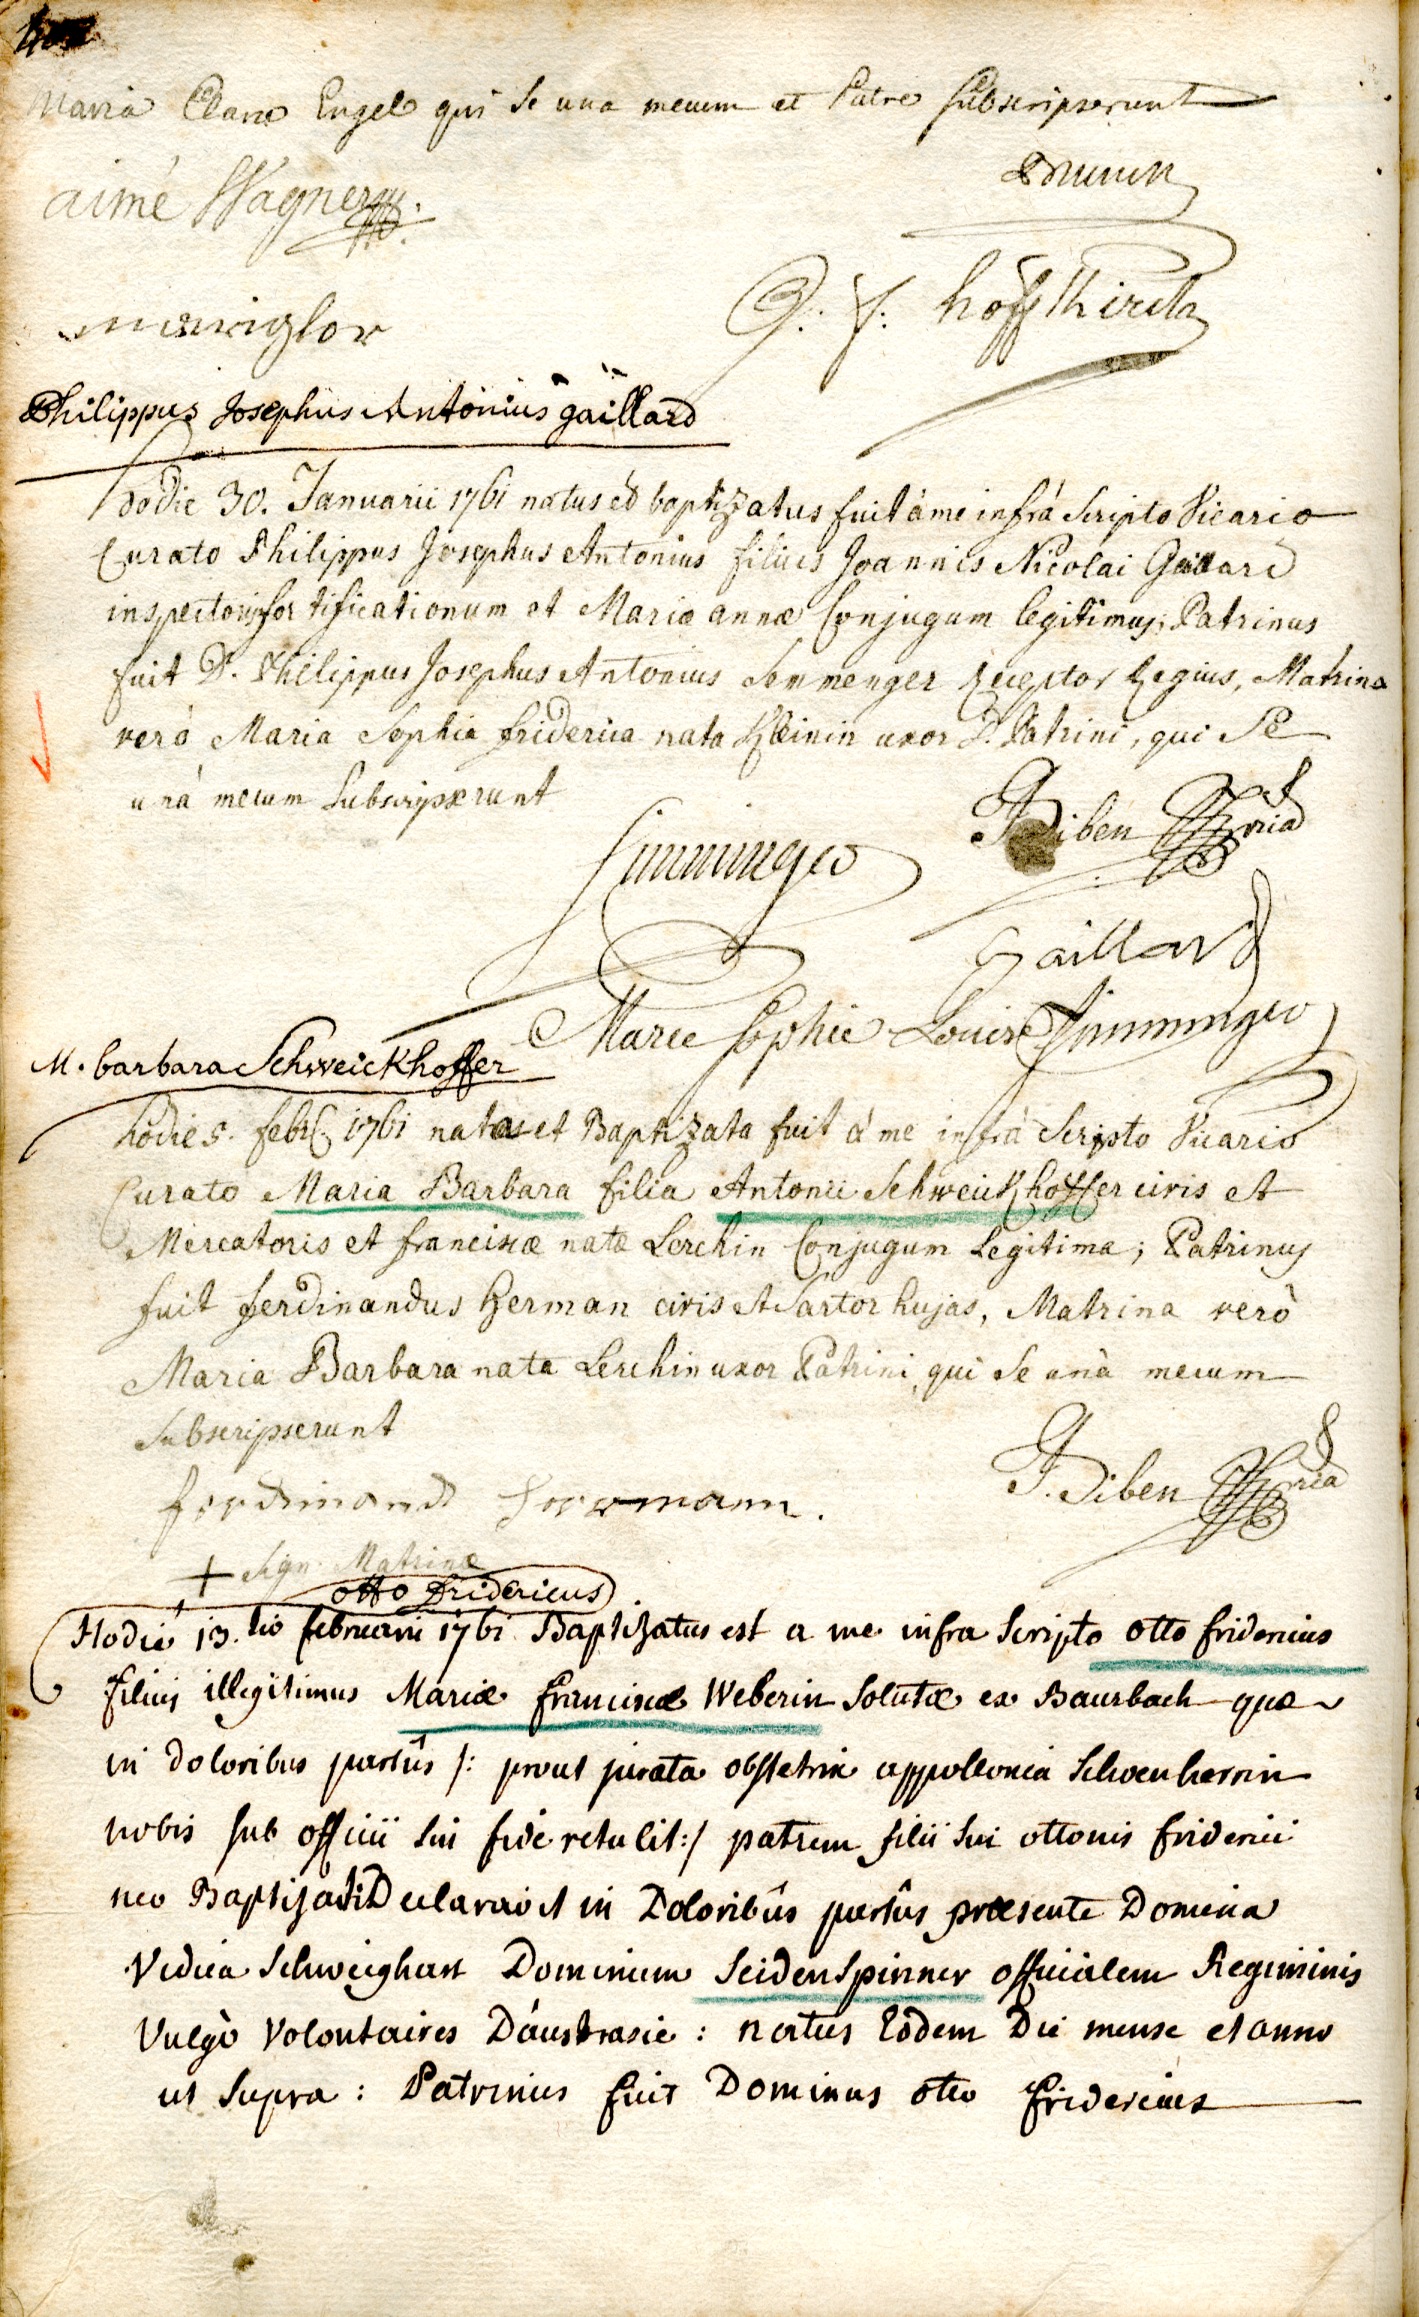 Maria Clara Engel qui se una mecum et Patre subscripserunt
aimé Wagner
G. f. höffkirch
Philippus Josephus Antonius gaillard
hodie 30. Januarii 1761 natus et baptizatus fuit à me infrà scripto Vicario
Curato Philippus Josephus Antonius filius Joannis Nicolai Gaillard
inspectoris fortificationum et Mariæ annæ Conjugum legitimus; Patrinus
fuit D. Philippus Josephus Antonius Semmenger Receptor Regius, Matrina
verò Maria Sophia friderica nata Kleinin uxor D. Patrini, qui se
unà mecum subscripserunt
Simminger
J. Siben
Gaillard
Marie Sophie Louise Simminger
M. barbara Schweickhoffer
hodie 5. feb. 1761 nata et Baptizata fuit à me infrà scripto Vicario
Curato Maria Barbara filia Antonii Schweickhoffer civis et
Mercatoris et franciscæ natæ Lerchin Conjugum Legitima; Patrinus
fuit ferdinandus Herman civis et Sartor hujas, Matrina verò
Maria Barbara nata Lerchin uxor Patrini, qui se unà mecum
subscripserunt
J. Siben
ferdinand Herrmann.
+ sign. Matrinæ
otto fridericus
Hodie 13.tio februarii 1761 Baptizatus est a me infra scripto otto fridericus
filius illegitimus Mariæ franciscæ Weberin solutæ ex Baursbach quæ
in doloribus partûs /: prout jurata obstetrix appollonia Schoenherrin
nobis sub officii sui fide retulit :/ patrem filii sui ottonis friderici
neo Baptizati Declaravit in Doloribûs partûs præsente Domina
Vidua Schweighart Dominum Seidenspinner officialem Regiminis
Vulgò Volontaires D'austrasie : natus Eodem Die mense et anno
ut supra : Patrinus fuit Dominus otto fridericus